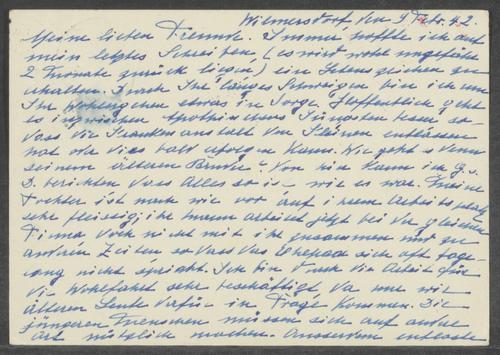 Wilmersdorf den 9 Febr. 42.
Meine lieben Freunde. Immer hoffte ich auf
mein letztes Schreiben, (es wird wohl ungefähr
2 Monate zurück liegen) ein Lebenszeichen zu
erhalten. Durch Ihr langes Schweigen bin ich um
Ihr Wohlergehen etwas in Sorge. Hoffentlich geht
es inzwischen Jüngsten so
dass die Krankenanstalt den Kleinen entlassen
hat oder dies bald erfolgen kann. Wie geht es denn
seinem älteren Bruder? Von hier kann ich G. s.
D. berichten dass Alles so ist wie es war. Meine
Tochter ist nach wie vor auf ihrem Arbeitsplatz
sehr fleissig; ihr Mann arbeitet jetzt bei der gleichen
Firma doch nicht mit ihr zusammen und zu
andren Zeiten so dass das Ehepaar sich oft tage-
lang nicht spricht. Ich bin durch die Arbeit für
die Wohlfahrt sehr beschäftigt da nur wir
älteren Leute dafür in Frage kommen. Die
jüngeren Menschen müssen sich auf andre
Art nützlich machen. Ausserdem entlaste